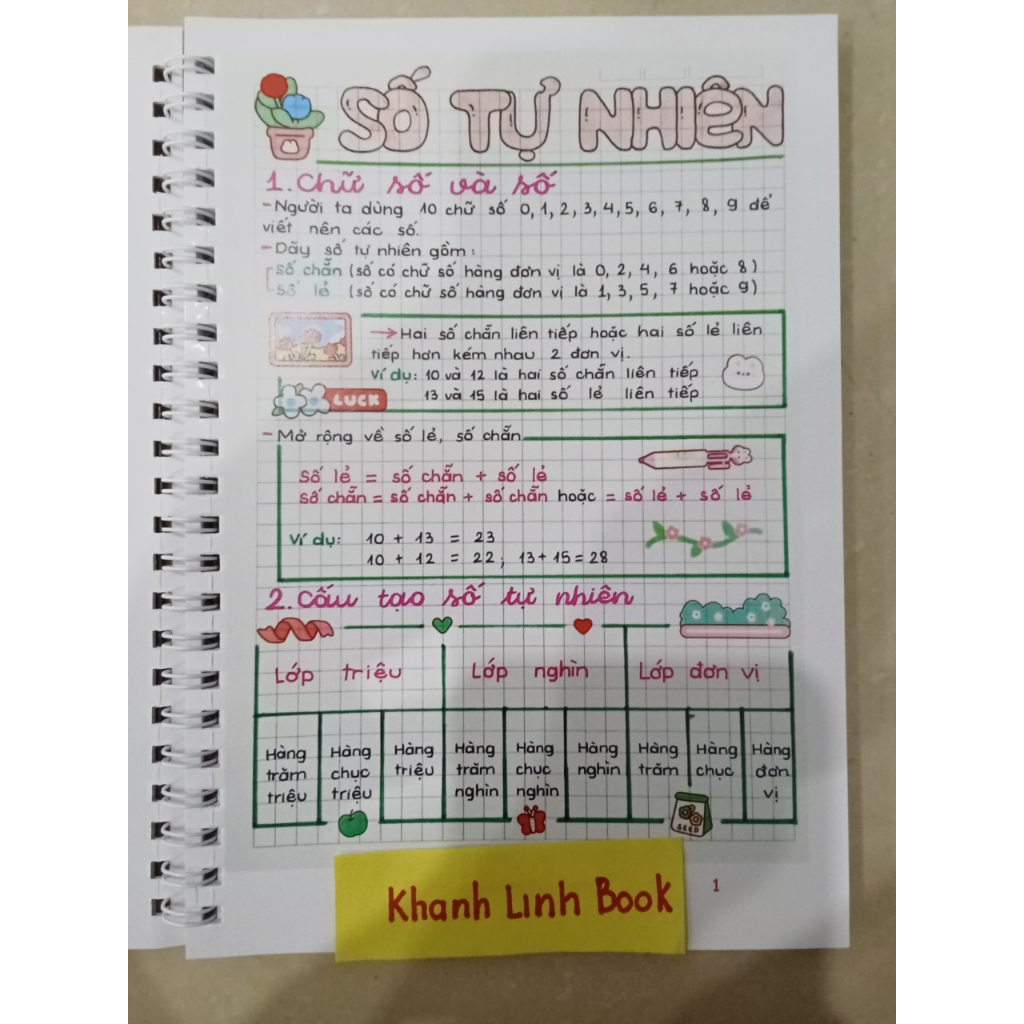 SỐ TỰ NHIÊN
1. Chữ số và số
- Người ta dùng 10 chữ số 0, 1, 2, 3, 4, 5, 6, 7, 8, 9 để
viết nên các số.
- Dãy số tự nhiên gồm:
Số chẵn (số có chữ số hàng đơn vị là 0, 2, 4, 6 hoặc 8)
Số lẻ (số có chữ số hàng đơn vị là 1, 3, 5, 7 hoặc 9)
→ Hai số chẵn liên tiếp hoặc hai số lẻ liên
tiếp hơn kém nhau 2 đơn vị.
Ví dụ: 10 và 12 là hai số chẵn liên tiếp
LUCK
13 và 15 là hai số lẻ liên tiếp
- Mở rộng về số lẻ, số chẵn
Số lẻ = số chẵn + số lẻ
Số chẵn = số chẵn + số chẵn hoặc = số lẻ + số lẻ
Ví dụ: 10 + 13 = 23
10 + 12 = 22; 13 + 15 = 28
2. Cấu tạo số tự nhiên
Lớp triệu Lớp nghìn Lớp đơn vị
Hàng trăm triệu
Hàng chục triệu
Hàng triệu
Hàng trăm nghìn
Hàng chục nghìn
Hàng nghìn
Hàng trăm
Hàng chục
Hàng đơn vị
SEED
Khanh Linh Book
1